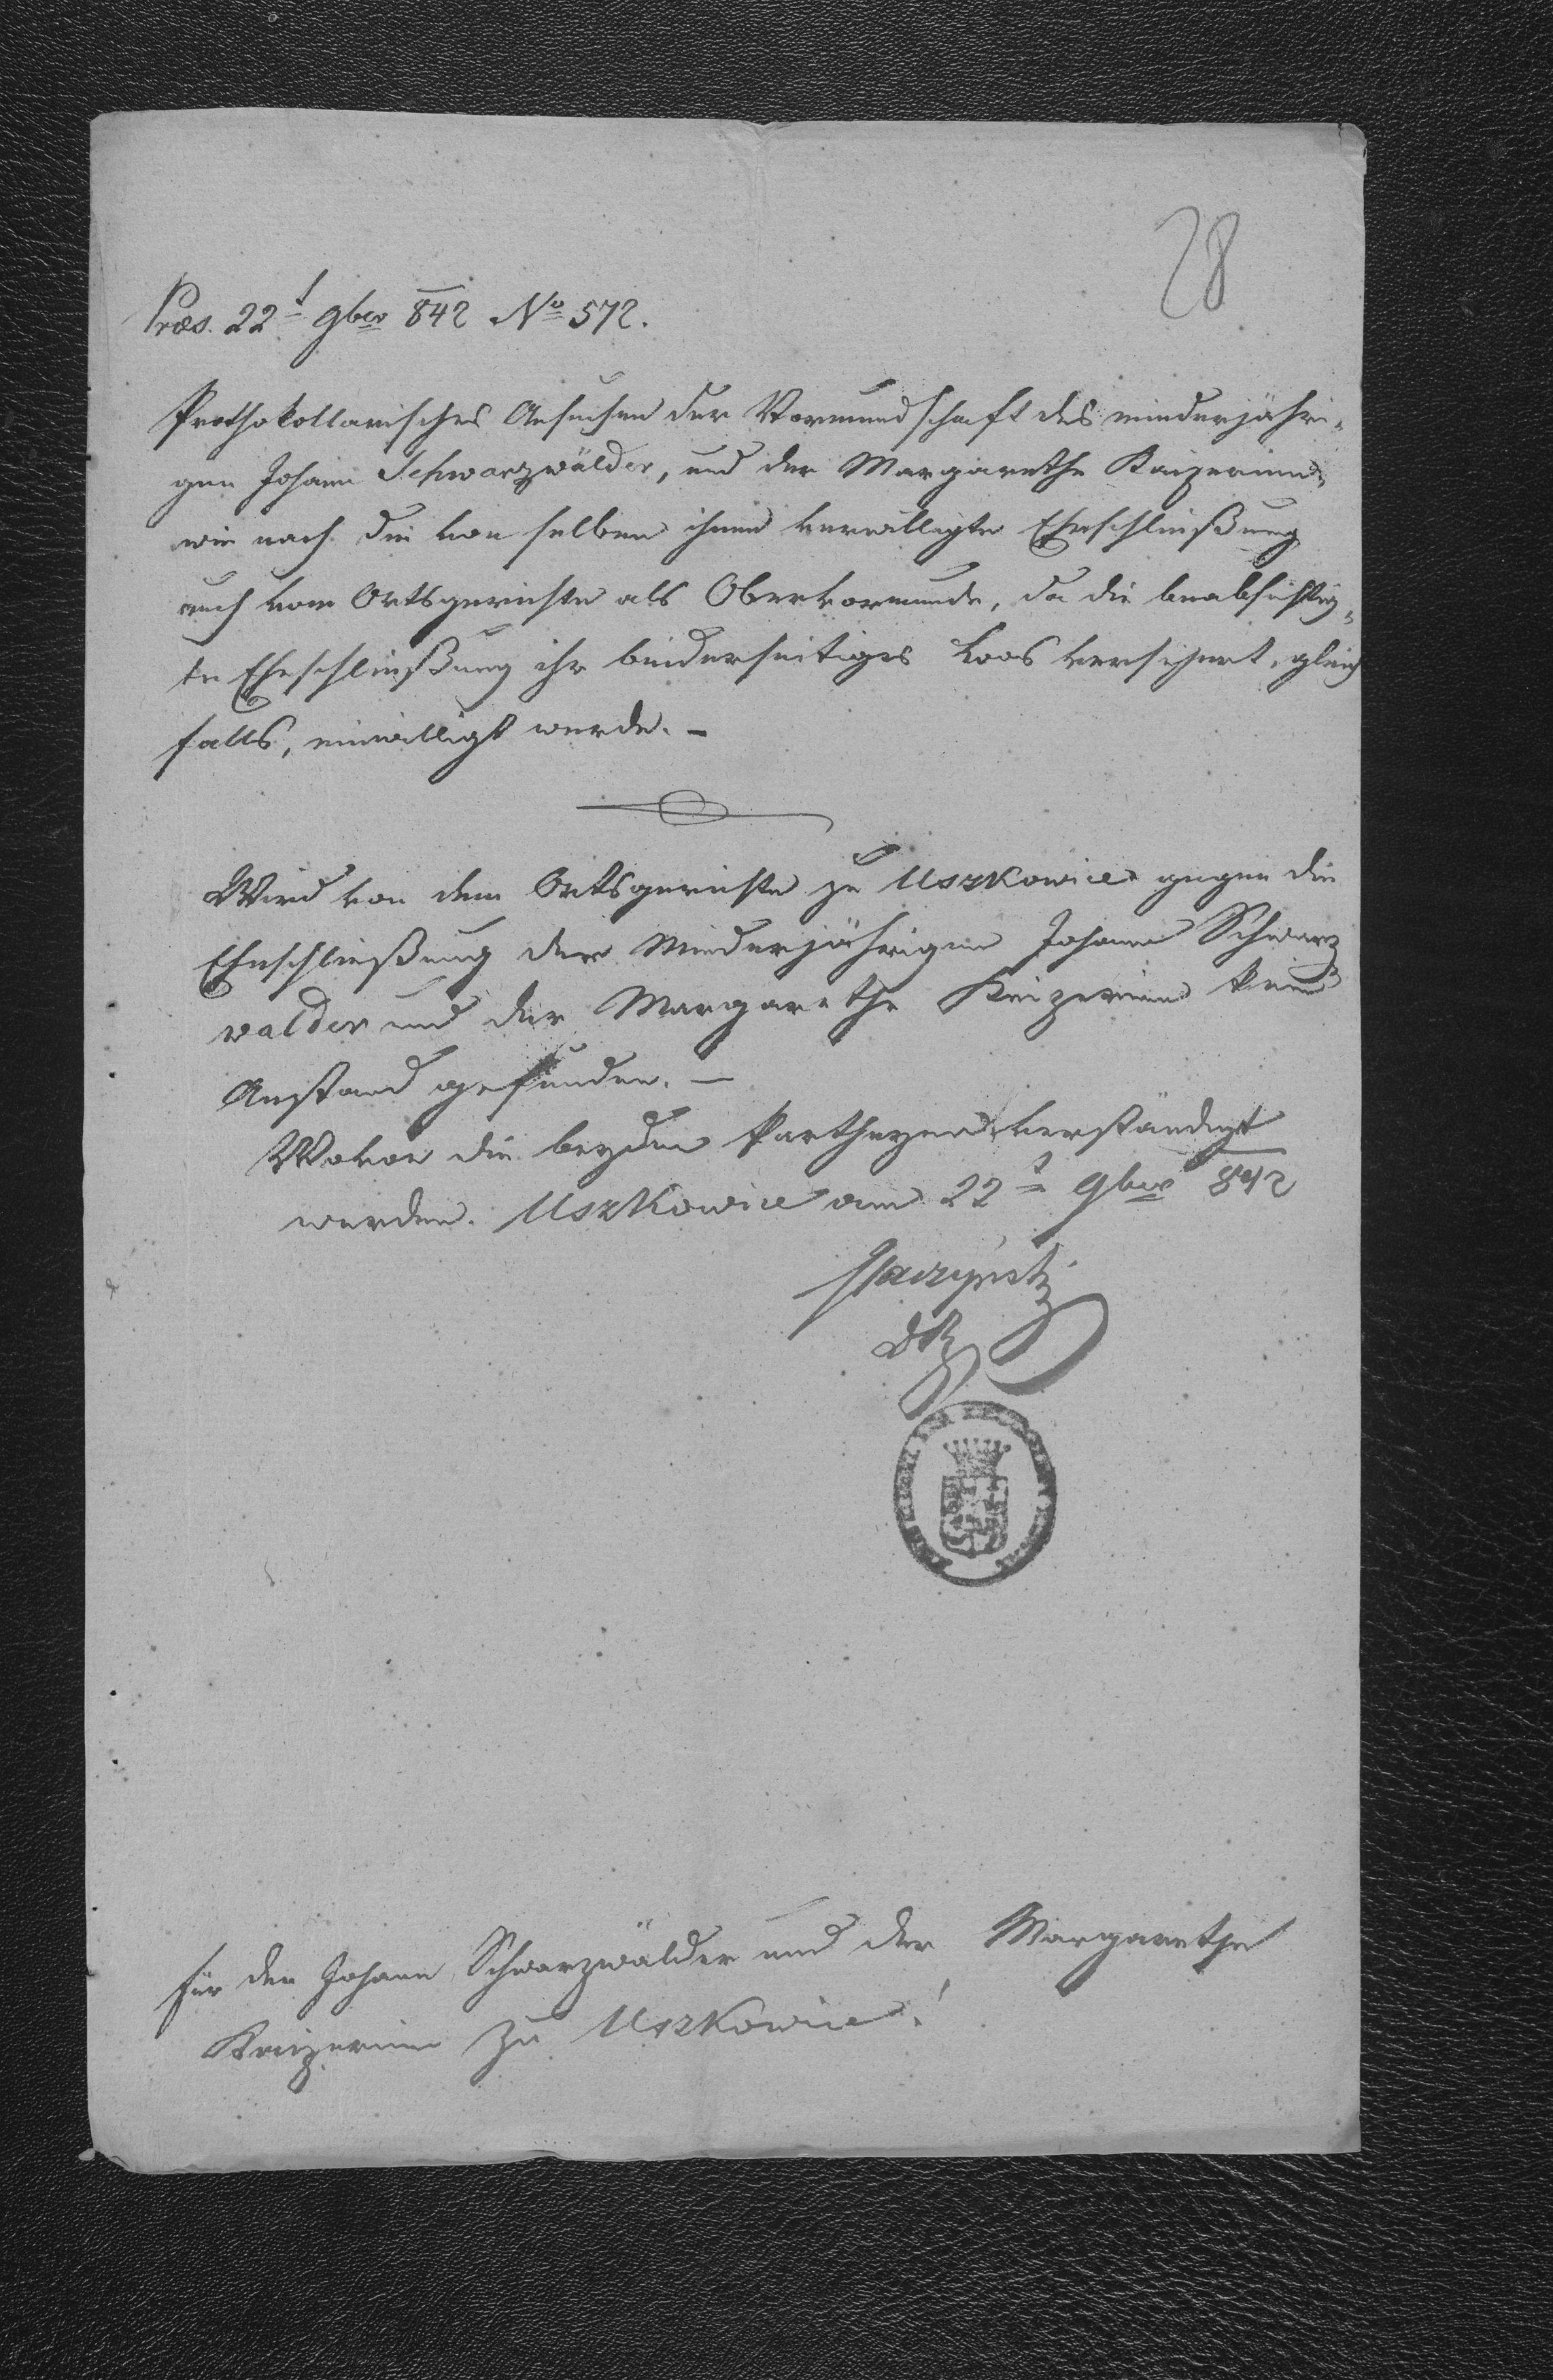 28
Præs. 22t 9ber 842 No 572.
Prothokollarisches Ansuchen der Vormundschaft des minderjähri-
gen Johann Schwarzwälder, und der Margarethe Keizerinn,
wie nach die von selben ihnen verwilligte Eheschließung
auch vom Ortsgerichte als Obervormunde, da die beabsichtig-
te Eheschließung ihr beiderseitiges Loos versichert, gleich
falls, einwilligt werde. –
Wird von dem Ortsgerichte zu Uszkowice gegen die
Eheschließung der Minderjährigen Johann Schwarz
walder und der Margarethe Keizerinn kein
Anstand gefunden. –
Wovon die beyden Partheyen verständigt
werden. Uszkowice am 22t 9ber 842
für den Johann Schwarzwälder und der Margarethe
Keizerinn zu Uszkowice!